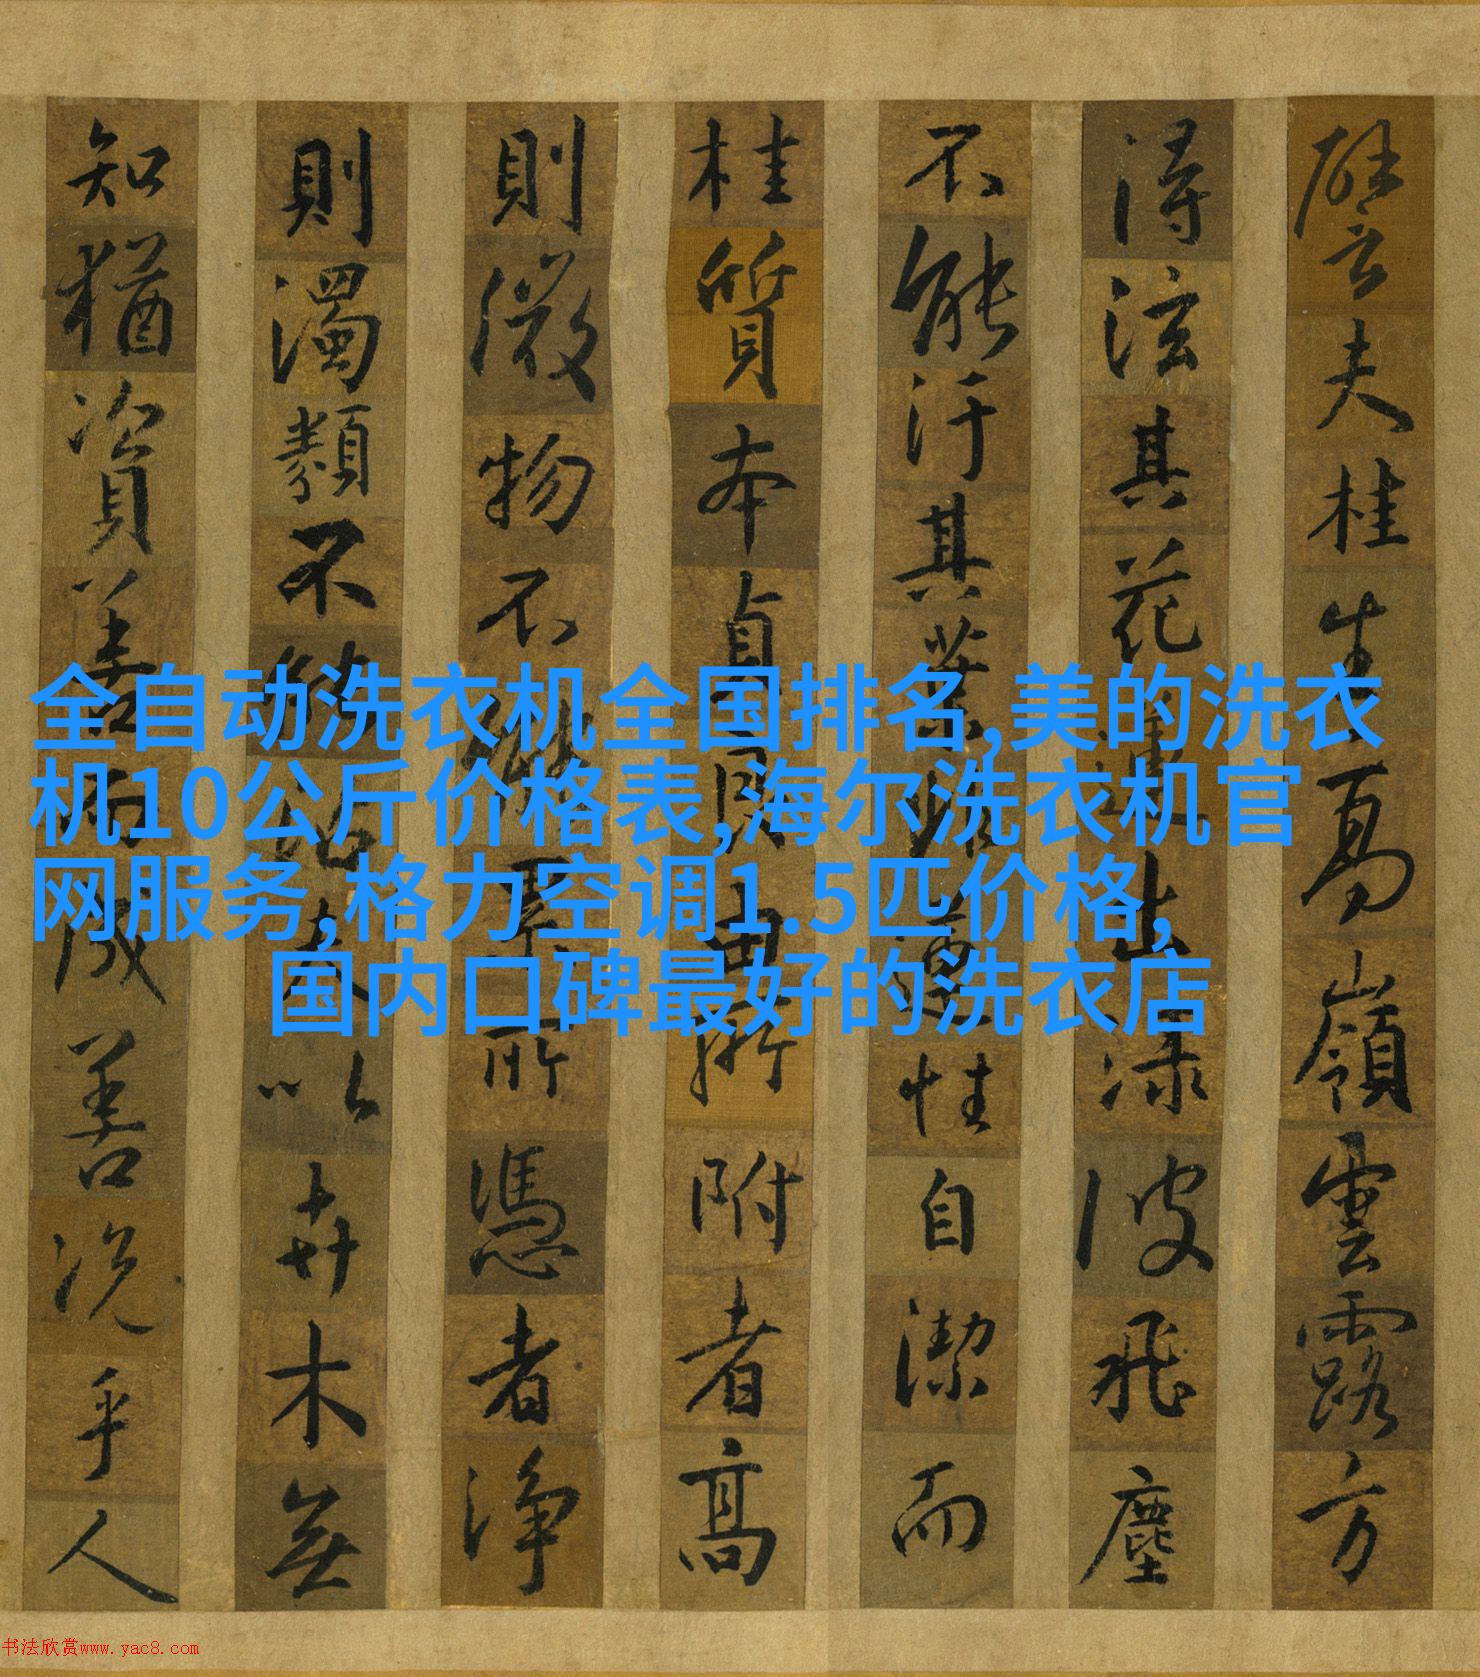 譬夫桂生高嶺雲露方
得泫其花蓮出淥波飛塵
不能汙其葉非蓮性自潔而
桂質本貞良由所附者高
則微物不能累所憑者淨
則濁類不能沾夫以卉木無
知猶資善而成善況乎人
全自动洗衣机全国排名,美的洗衣
机10公斤价格表,海尔洗衣机官
网服务,格力空调1.5匹价格,
国内口碑最好的洗衣店
书法欣赏www.yac8.com